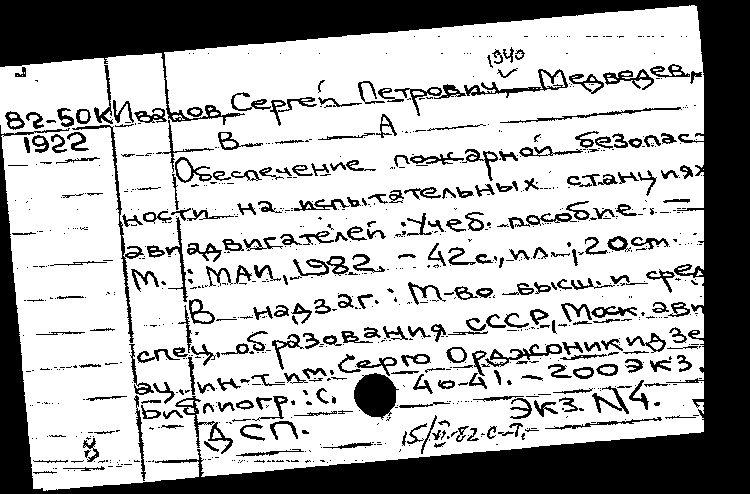 1940
82-50К Иванов, Сергей Петрович, Медведев,
1922 В А
Обеспечение пожарной безопас-
ности на испытательных станциях
авиадвигателей : Учеб. пособие . —
М. : МАИ, 1982. - 42 с., ил. ; 20 см.
В надзаг. : М-во высш. и сред
спец. образования СССР, Моск. ави
ац. ин-т им. Серго Орджоникидзе
Библиогр. : с. 40-41. - 200 экз.
Экз. N4.
8 ДСП.